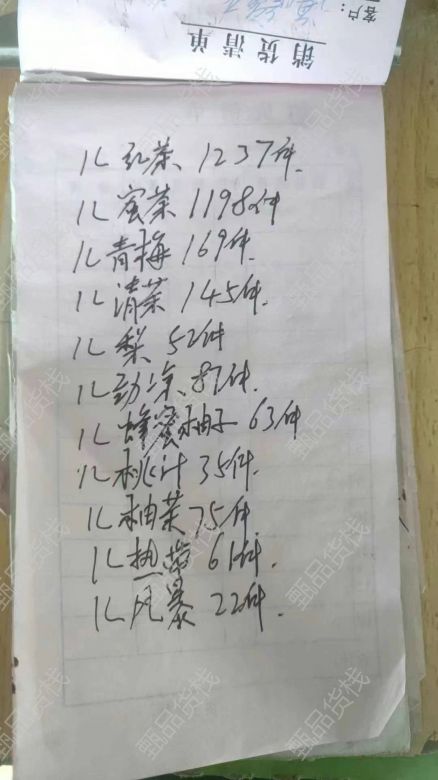 客户:
销货清单
1L红茶 1237件.
1L蜜茶 1198件
1L青梅 169件.
1L清茶 145件.
1L梨 52件
1L劲凉 87件.
1L蜂蜜柚子 63件
1L桃汁 35件.
1L柚茶 75件
1L热带 61件.
1L风暴 22件.
甄品货栈